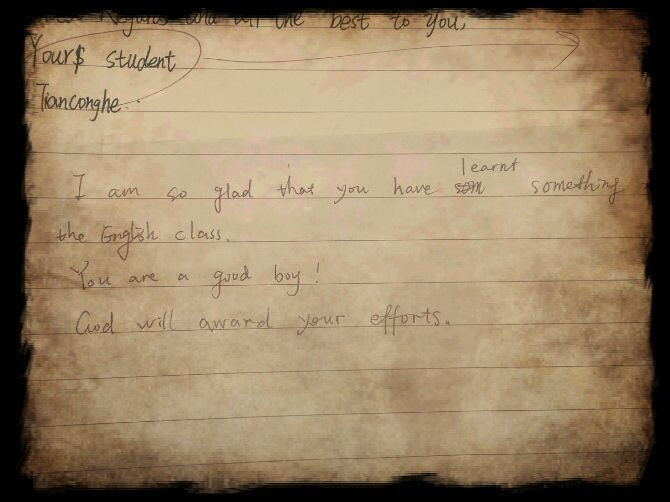 Best Regards and all the best to you,
Your$ student
Tianconghe.
I am so glad that you have learnt something
the English class.
You are a good boy!
God will award your efforts.